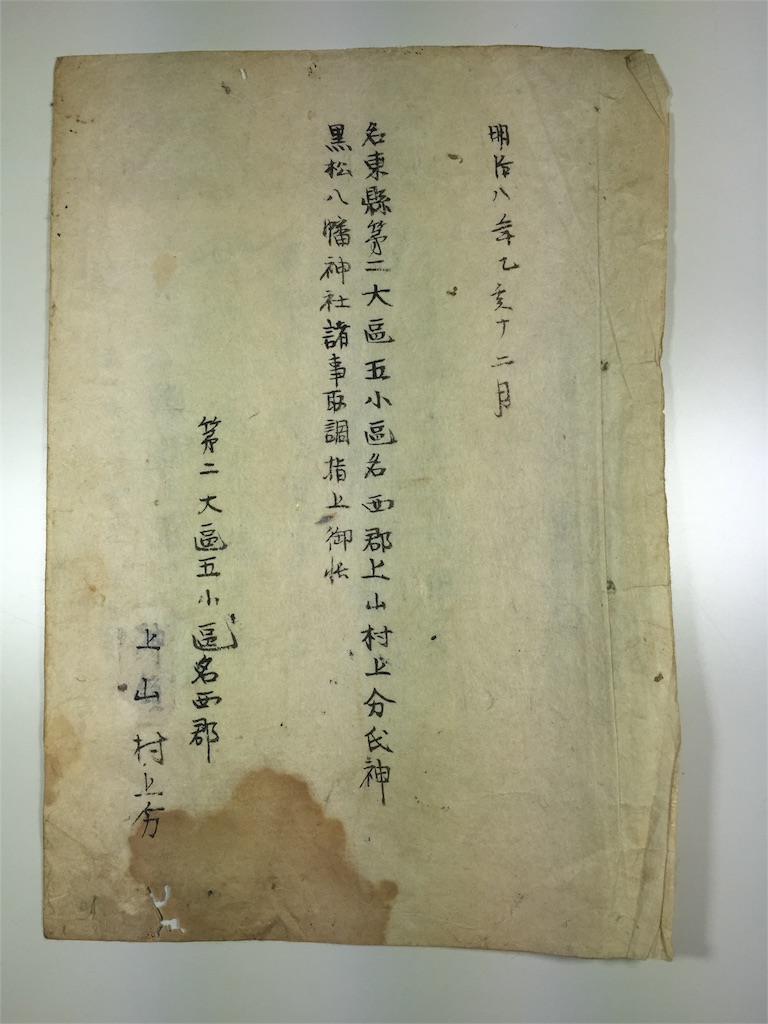 明治八年乙亥十二月
名東縣第二大區五小區名西郡上山村上分氏神
黒松八幡神社諸事取調指上御帳
第二大區五小區名西郡
上山村上分